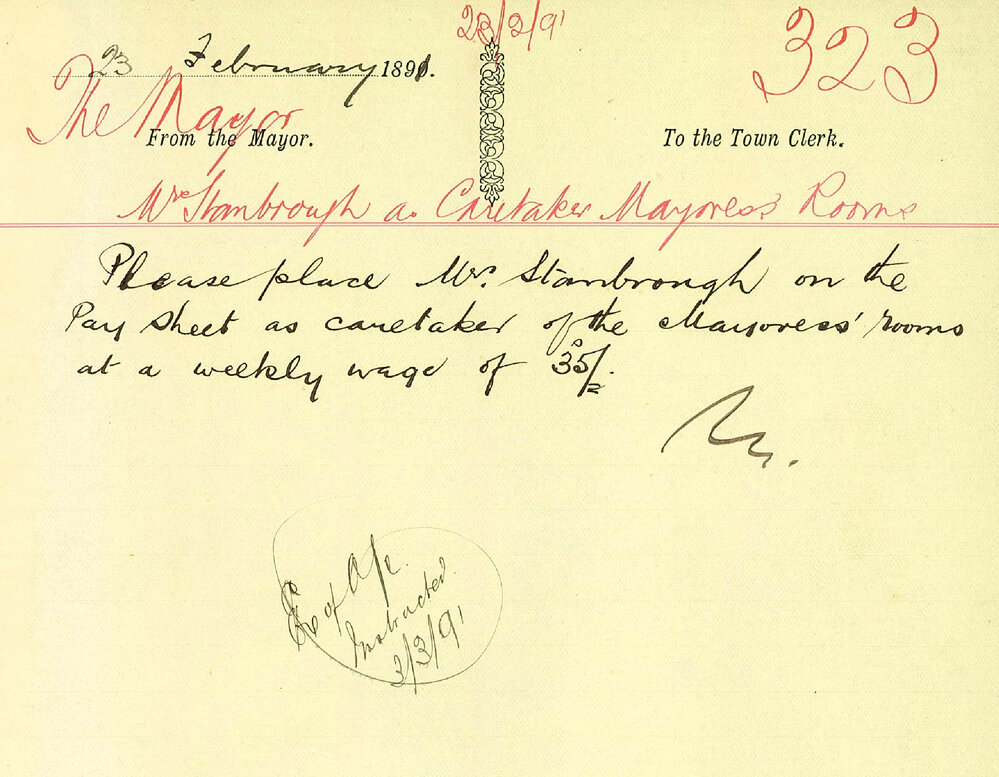 23/2/91
323
23 February 1891.
The Mayor
From the Mayor. To the Town Clerk.
Mrs Stanbrough as Caretaker Mayoress' Rooms
Please place Mrs. Stanbrough on the
Pay sheet as caretaker of the Mayoress' rooms
at a weekly wage of 35/.
of A/c.
Instructed
3/3/91